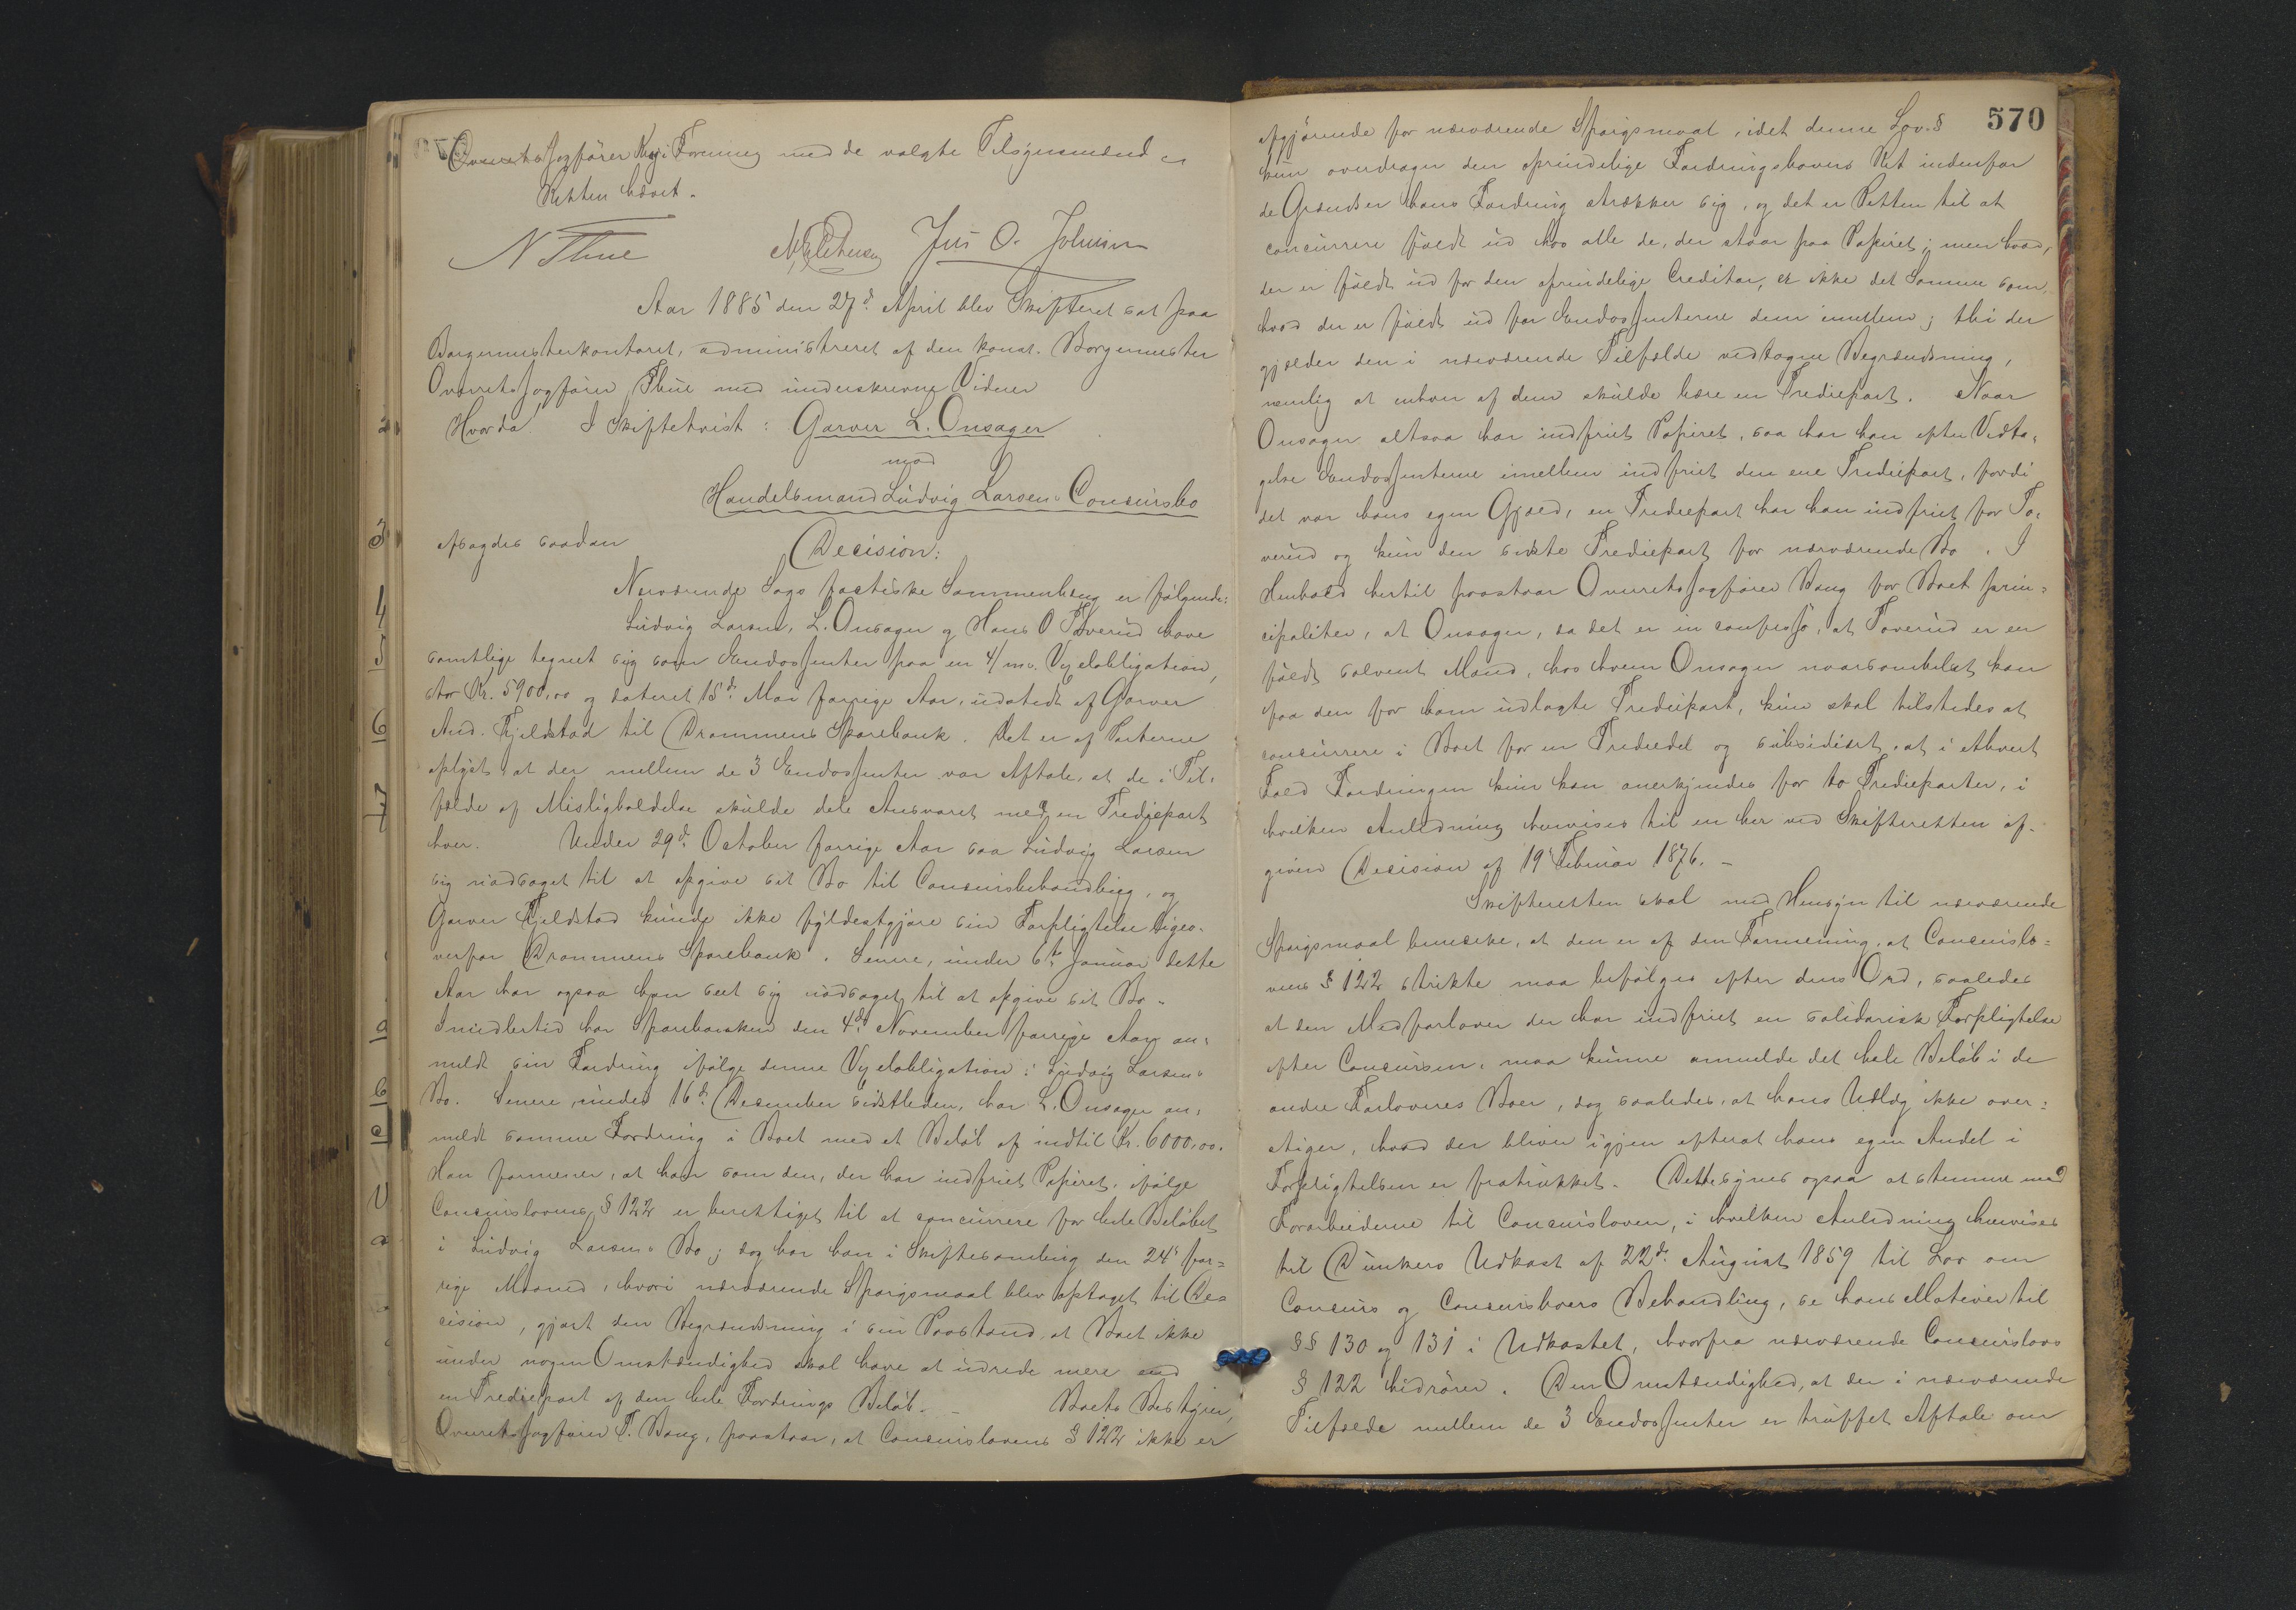 Overretssagfører Kryi Forening med de valgte Tilsynsmænd
Retten hævet.
N Thue Jens O. Johnsen
Aar 1885 den 27d April blev Skifteret sat paa
Borgermesterkontoret, administreret af den konst. Borgermester
Overretssagfører Thue med underskrevne Vidner
Hvorda! I Skiftetvist: Garver L. Onsager
mod
Handelsmand Ludvig Larsens Concursbo
afsagdes saadan Decision:
Nærværende Sags factiske Sammenhæng er følgende:
Ludvig Larsen, L. Onsager og Hans O Taverud have
samtlige tegnet sig som Endossenter paa en 4/md. Vexelobligation,
stor Kr. 5900,00 og dateret 15d Mai forrige Aar, udstedt af Garver
And. Fjeldstad til Drammens Sparebank. Det er af Parterne
oplyst, at der mellem de 3 Endossenter var Aftale, at de i Til-
fælde af Misligholdelse skulde dele Ansvaret med en Trediepart
hver. Under 29d October forrige Aar saa Ludvig Larsen
sig nødsaget til at opgive sit Bo til Concursbehandling, og
Garver Fjeldstad kunde ikke fyldestgjøre sin Forpligtelse ligeo-
verfor Drammens Sparebank. Senere, under 6te Januar dette
Aar har ogsaa han seet sig nødsaget til at opgive sit Bo.
Imidlertid har Sparebanken den 4d November forrige Aar an-
meldt sin Fordring ifølge denne Vexelobligation i Ludvig Larsens
Bo. Senere, under 16d December sidstleden, har L. Onsager an-
meldt samme Fordring i Boet med et Beløb af indtil Kr. 6000,00.
Han formener, at han som den, der har indfriet Papiret, ifølge
Concurslovens § 122 er berettiget til at concurrere for hele Beløbet
i Ludvig Larsens Bo; dog har han i Skiftesamling den 24d for-
rige Maaned, hvori nærværende Spørgsmaal blev optaget til De-
cision, gjort den Begrændsning i sin Paastand, at Boet ikke
under nogen Omstændighed skal have at udrede mere end
en Trediepart af den hele Fordrings Beløb. Boets Bestyrer,
Overretssagfører T. Bang, paastaar, at Concurslovens § 122 ikke er
570
afgjørende for nærværende Spørgsmaal, idet denne Lov-§
kun overdrager den oprindelige Fordringshavers Ret indenfor
de Grændser hans Fordring strækker sig, og det er Retten til at
concurrere fuldt ud hos alle de, der staar paa Papiret; men hvad,
der er fuldt ud for den oprindelige Creditor, er ikke det Samme som,
hvad der er fuldt ud for Endossenterne dem imellem; thi der
gjælder den i nærværende Tilfælde vedtagne Begrændsning,
nemlig at enhver af dem skulde bære en Trediepart. Naar
Onsager altsaa har indfriet Papiret, saa har han efter Vedta-
gelse Endossenterne imellem indfriet den ene Trediepart, fordi
det var hans egen Gjæld, en Trediepart har han indfriet for Ta-
verud og kun den sidste Trediepart for nærværende Bo. I
Henhold hertil paastaar Overretssagfører Bang for Boet prin-
cipaliter, at Onsager, da det er in confesso, at Taverud er en
fuldt solvent Mand, hos hvem Onsager naarsomhelst kan
faa den for ham udlagte Trediepart, kun skal tilstedes at
concurrere i Boet for en Trediedel og subsidiært, at i ethvert
Fald Fordringen kun kan anerkjendes for to Tredieparter, i
hvilken Anledning henvises til en her ved Skifteretten af-
given Decision af 19 Februar 1876. –
Skifteretten skal med Hensyn til nærværende
Spørgsmaal bemærke, at den er af den Formening, at Concurslo-
vens § 122 strikte maa befølges efter dens Ord, saaledes
at den Medforlover der har indfriet en solidarisk Forpligtelse
efter Concursen, maa kunne anmelde det hele Beløb i de
andre Forloveres Boer, dog saaledes, at hans Udlæg ikke over-
stiger, hvad der bliver igjen efterat hans egen Andel i
Forpligtelsen er fratrukket. Dette synes ogsaa at stemme med
Forarbeiderne til Concursloven, i hvilken Anledning henvises
til Dunkers Udkast af 22d August 1859 til Lov om
Concurs og Concursboers Behandling, se hans Motiver til
§§ 130 og 131 i Udkastet, hvorfra nærværende Concurslovs
§ 122 hidrører. Den Omstændighed, at der i nærværende
Tilfælde mellem de 3 Endossenter er truffet Aftale om